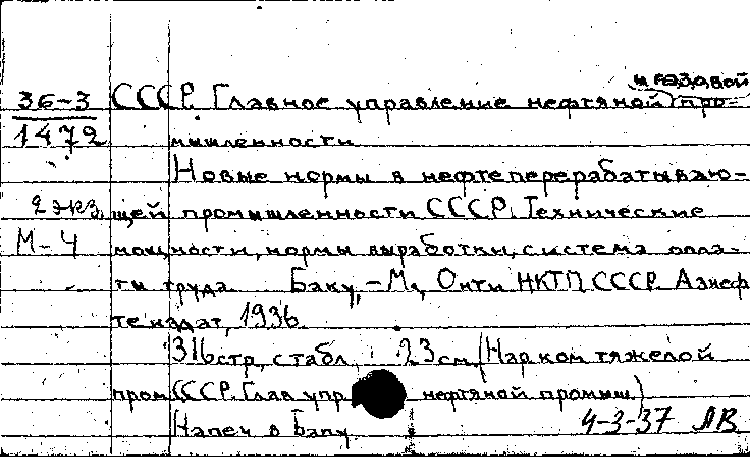 и газовой
36-3 СССР. Главное управление нефтяной про-
1472 мышленности
Новые нормы в нефтеперерабатываю-
2 экз. щей промышленности СССР. Технические
М-4 мощности, нормы выработки, система опла-
ты труда Баку, -М., Онти НКТП СССР. Азнеф
теиздат, 1936.
316стр, с табл. 23см. (Нарком тяжелой
пром СССР. Глав упр нефтяной промыш.)
Напеч в Баку 4-3-37 ЛВ